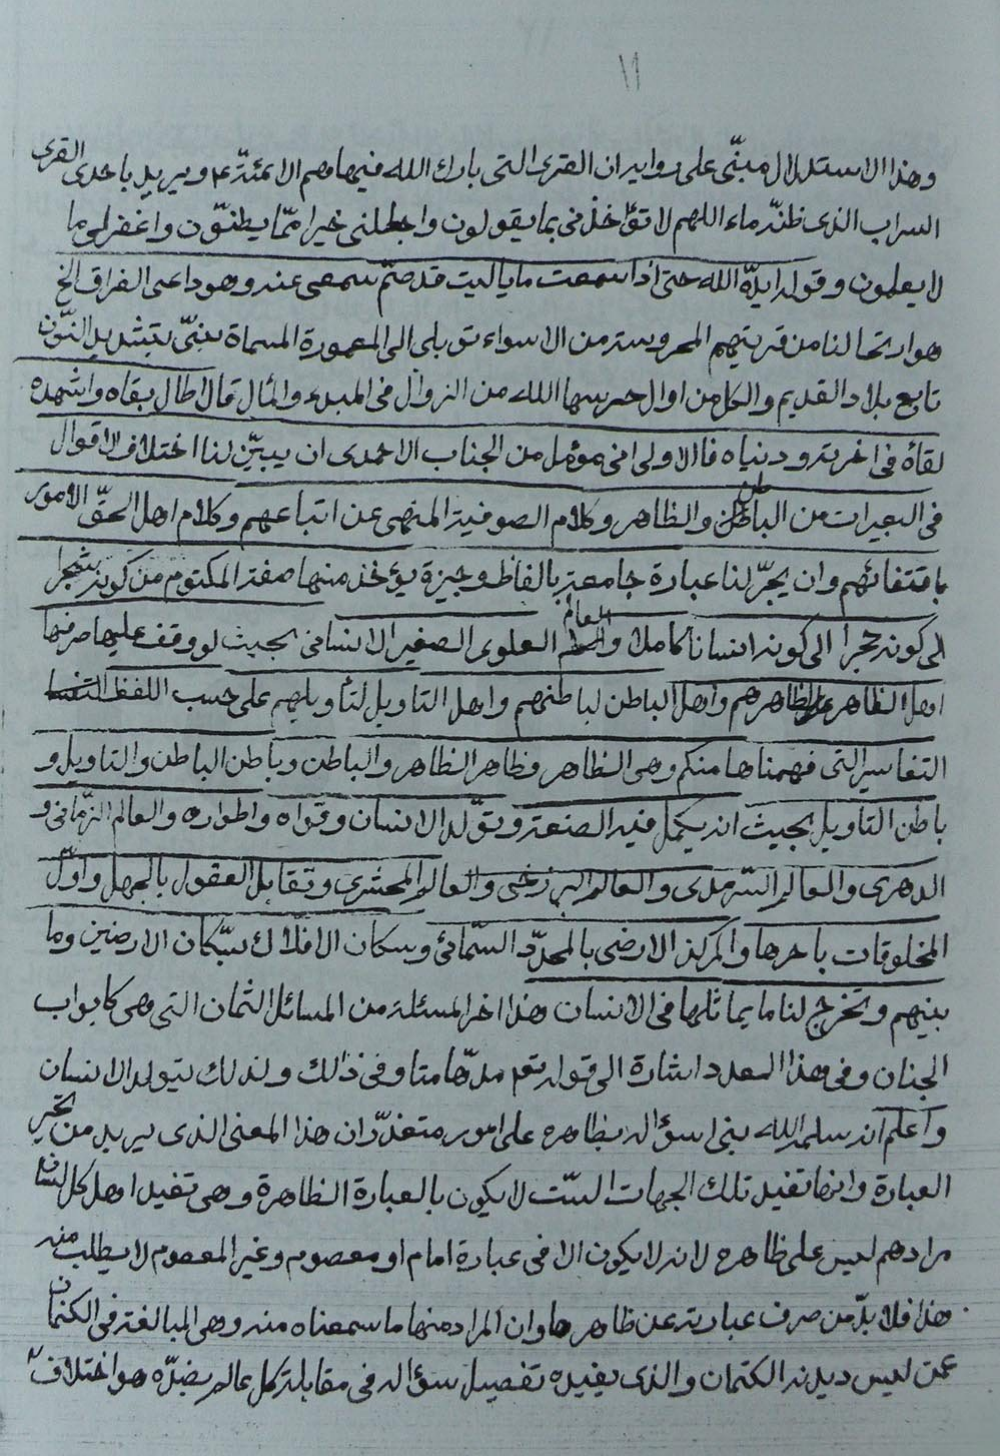 ١١
وهذا الاستدلال مبنّى على روايه ان القرى التى بارك الله فيها هم الائمّة ع ويريد باحدى القرى
السراب الذى ظنّه ماء اللهم لا تؤاخذنى بما يقولون واجعلنى خيرا ممّا يظنّون واغفر لى ما
لا يعلمون وقوله ايدّه الله حتى اذا سمعت ما ياليت قد صمّ سمعى عنه وهو داعى الفراق الخ
هو ارتحالنا من قريتهم المحروسة من الاسواء توبلى الى المعمورة المسماة ببنىّ بتشديد النّون
تابع بلاد القديم والكل من اوال حرسها الله من الزوال فى المبدء والمأل قال اطال بقاه واشهده
لقاه فى اخرته ودنياه فالاولى انى مؤمل من الجناب الاحمدى ان يبيّن لنا اختلاف الاقوال
فى التعبيرات من الباطن والظاهر وكلام الصوفية المنهى عن اتباعهم وكلام اهل الحقّ الامور
باقتفائهم وان يحرّر لنا عبارة جامعة بالفاظ وجيزة يؤخذ منها صفة المكتوم من كونه شجرا
الى كونه حجرا الى كونه انسانا كاملا والعالم العلوى الصغير الانسانى بحيث لو وقف عليها صرفها
اهل الظاهر على ظاهرهم واهل الباطن لباطنهم واهل التاويل لتأويلهم على حسب اللفظ
التفاسير التى فهمناها منكم وهى الظاهر وظاهر الظاهر والباطن وباطن الباطن والتاويل و
باطن التاويل بحيث انه يكمل فيه الصنعة وتولّد الانسان وقواه واطواره والعالم الزّمانى و
الدهرى والعالم السّرمدى والعالم البرزخى والعالم المحشرى وتقابل العقول بالجهل واوّل
المخلوقات باخرها والمركز الارضى بالمحدّد السّمائى وسكان الافلاك بسّكان الارضين وما
بينهم وتخرج لنا ما يماثلها فى الانسان وهذا اخر المسئلة من المسائل الثمان التى هى كابواب
الجنان وفى هذا العدد اشارة الى قوله تع مدهّامتا وفى ذلك ولذلك يتولد الانسان
واعلم انه سلمه الله بنى سؤاله بظاهره على امور متعذّرة لان هذا المعنى الذى يريد من تحرير
العبارة وانها تفيد تلك الجهات الستّ لا يكون بالعبارة الظاهرة وهى تفيد اهل كل لسان
مرادهم ليس على ظاهره لانه لا يكون الا فى عبارة امام او معصوم وغير المعصوم لا يطلب منه
هذا فلا بدّ من صرف عبارته عن ظاهرها وان المراد منها ما سمعناه منه وهى المبالغة فى الكتمان
عمّن ليس ديدنه الكتمان والذى يفيده تفصيل سؤاله فى مقابلة كل عالم بضدّه هو اختلاف